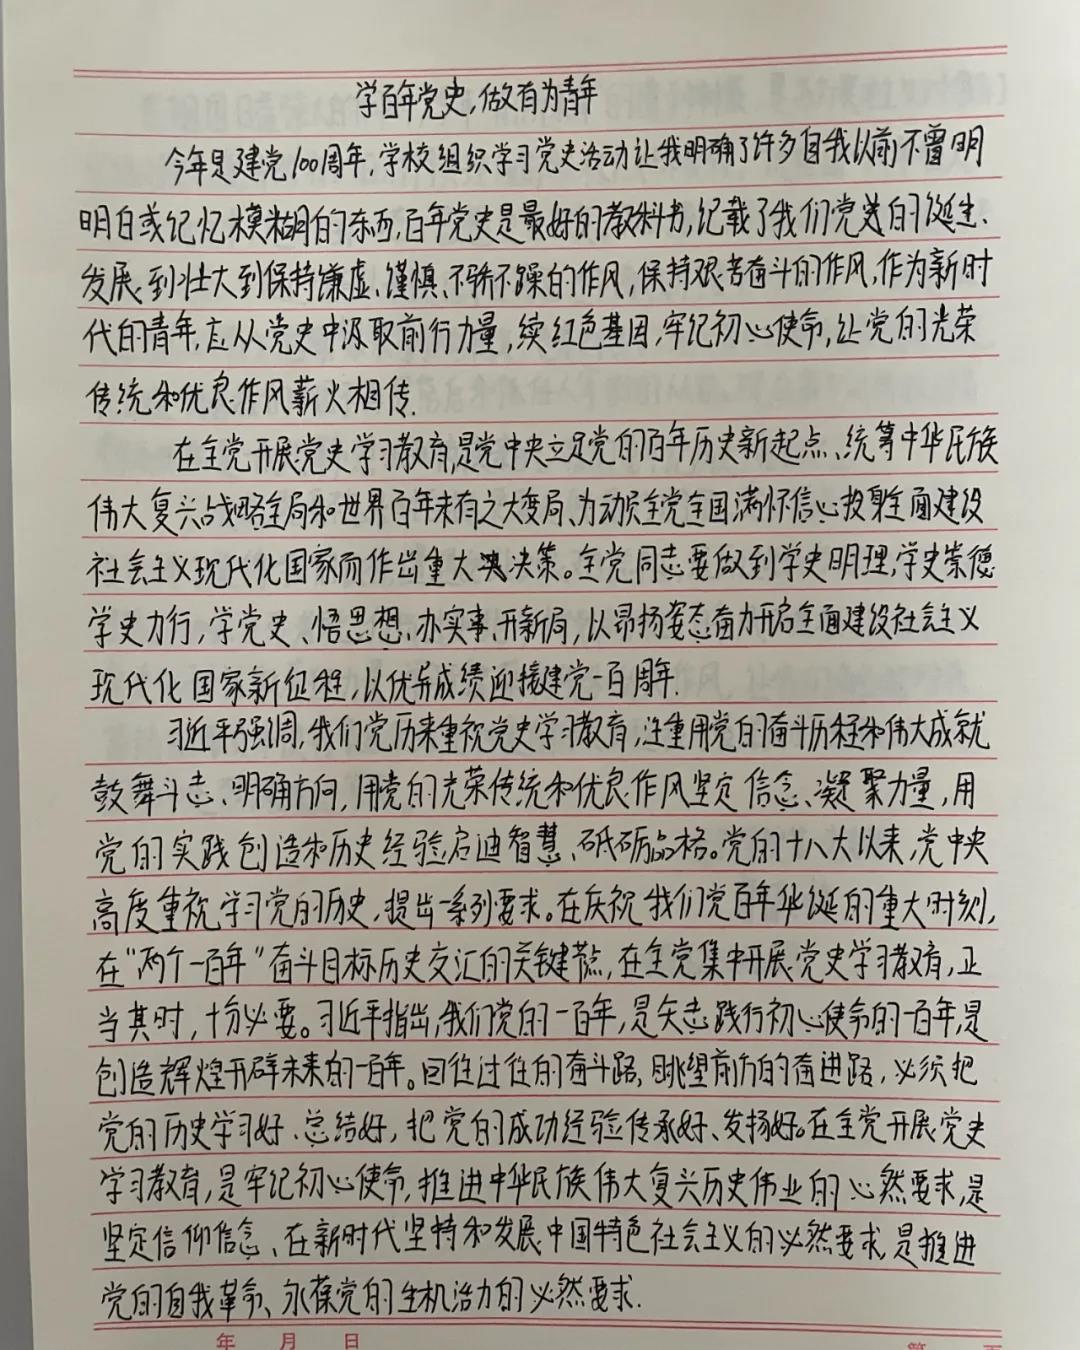 学百年党史,做有为青年
今年是建党100周年,学校组织学习党史活动让我明确了许多自我以前不曾明
明白或记忆模糊的东西,百年党史是最好的教科书,记载了我们党的诞生、
发展、到壮大到保持谦虚、谨慎、不骄不躁的作风,保持艰苦奋斗的作风,作为新时
代的青年,应从党史中汲取前行力量,续红色基因,牢记初心使命,让党的光荣
传统和优良作风薪火相传.
在全党开展党史学习教育,是党中央立足党的百年历史新起点、统筹中华民族
伟大复兴战略全局和世界百年未有之大变局、为动员全党全国满怀信心投身全面建设
社会主义现代化国家而作出重大决策。全党同志要做到学史明理,学史崇德
学史力行,学党史、悟思想、办实事、开新局,以昂扬姿态奋力开启全面建设社会主义
现代化国家新征程,以优异成绩迎接建党一百周年.
习近平强调,我们党历来重视党史学习教育,注重用党的奋斗历程和伟大成就
鼓舞斗志、明确方向,用党的光荣传统和优良作风坚定信念、凝聚力量,用
党的实践创造和历史经验启迪智慧、砥砺品格。党的十八大以来,党中央
高度重视学习党的历史,提出一系列要求。在庆祝我们党百年华诞的重大时刻,
在"两个一百年"奋斗目标历史交汇的关键节点,在全党集中开展党史学习教育,正
当其时,十分必要。习近平指出,我们党的一百年,是矢志践行初心使命的一百年,是
创造辉煌开辟未来的一百年。回往过往的奋斗路,眺望前方的奋进路,必须把
党的历史学习好、总结好,把党的成功经验传承好、发扬好。在全党开展党史
学习教育,是牢记初心使命,推进中华民族伟大复兴历史伟业的心然要求,是
坚定信仰信念、在新时代坚持和发展中国特色社会主义的必然要求,是推进
党的自我革命、永葆党的生机活力的必然要求.
年 月 日